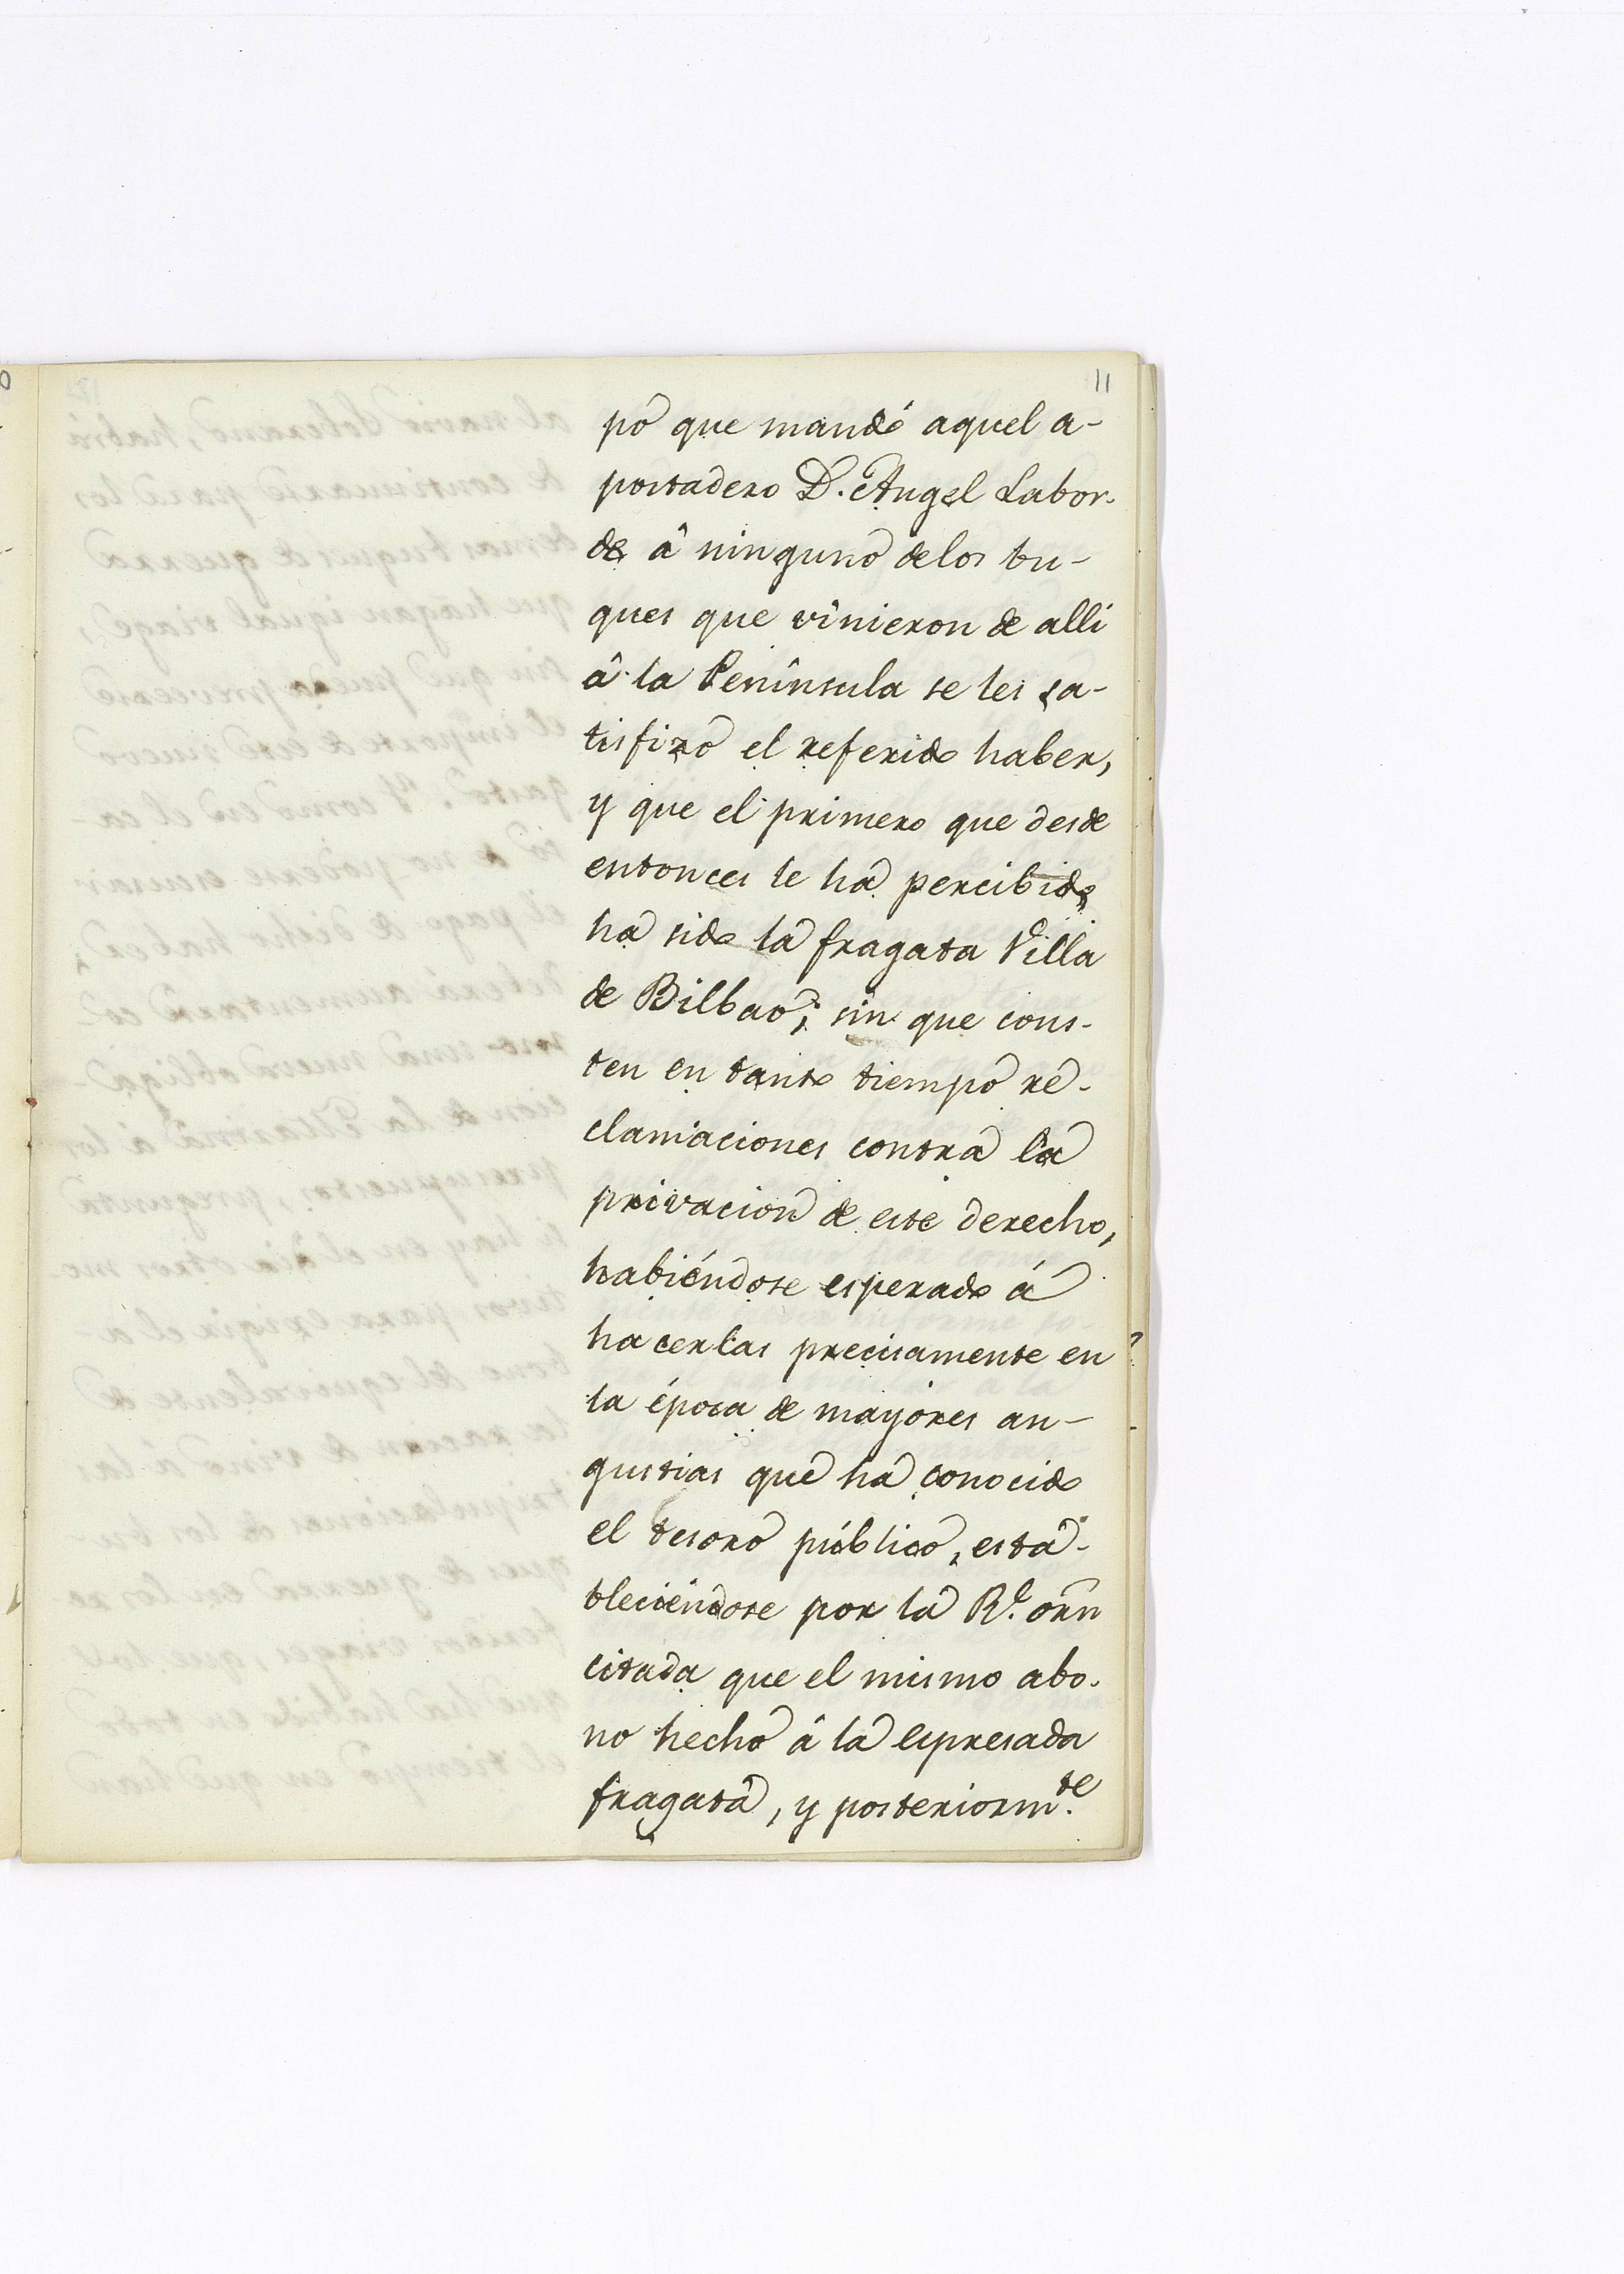 11
po que mandó aquel a-
postadero D. Angel Labor-
de â ninguno delos bu-
ques que vinieron de alli
â la Penînsula se les sa-
tisfizo el referido haber,
y que el primero que desde
entonces le ha percibido
ha sido la fragata Villa
de Bilbao; sin que cons-
ten en tanto tiempo re-
clamaciones contra la
privacion de este derecho,
habiéndose esperado á
hacerlas precisamente en
la época de mayores an-
gustias que ha conocido
el tesoro público, esta-
bleciéndose por la Rl. orn
citada que el mismo abo-
no hecho â la espresada
fragata, y posteriormte.